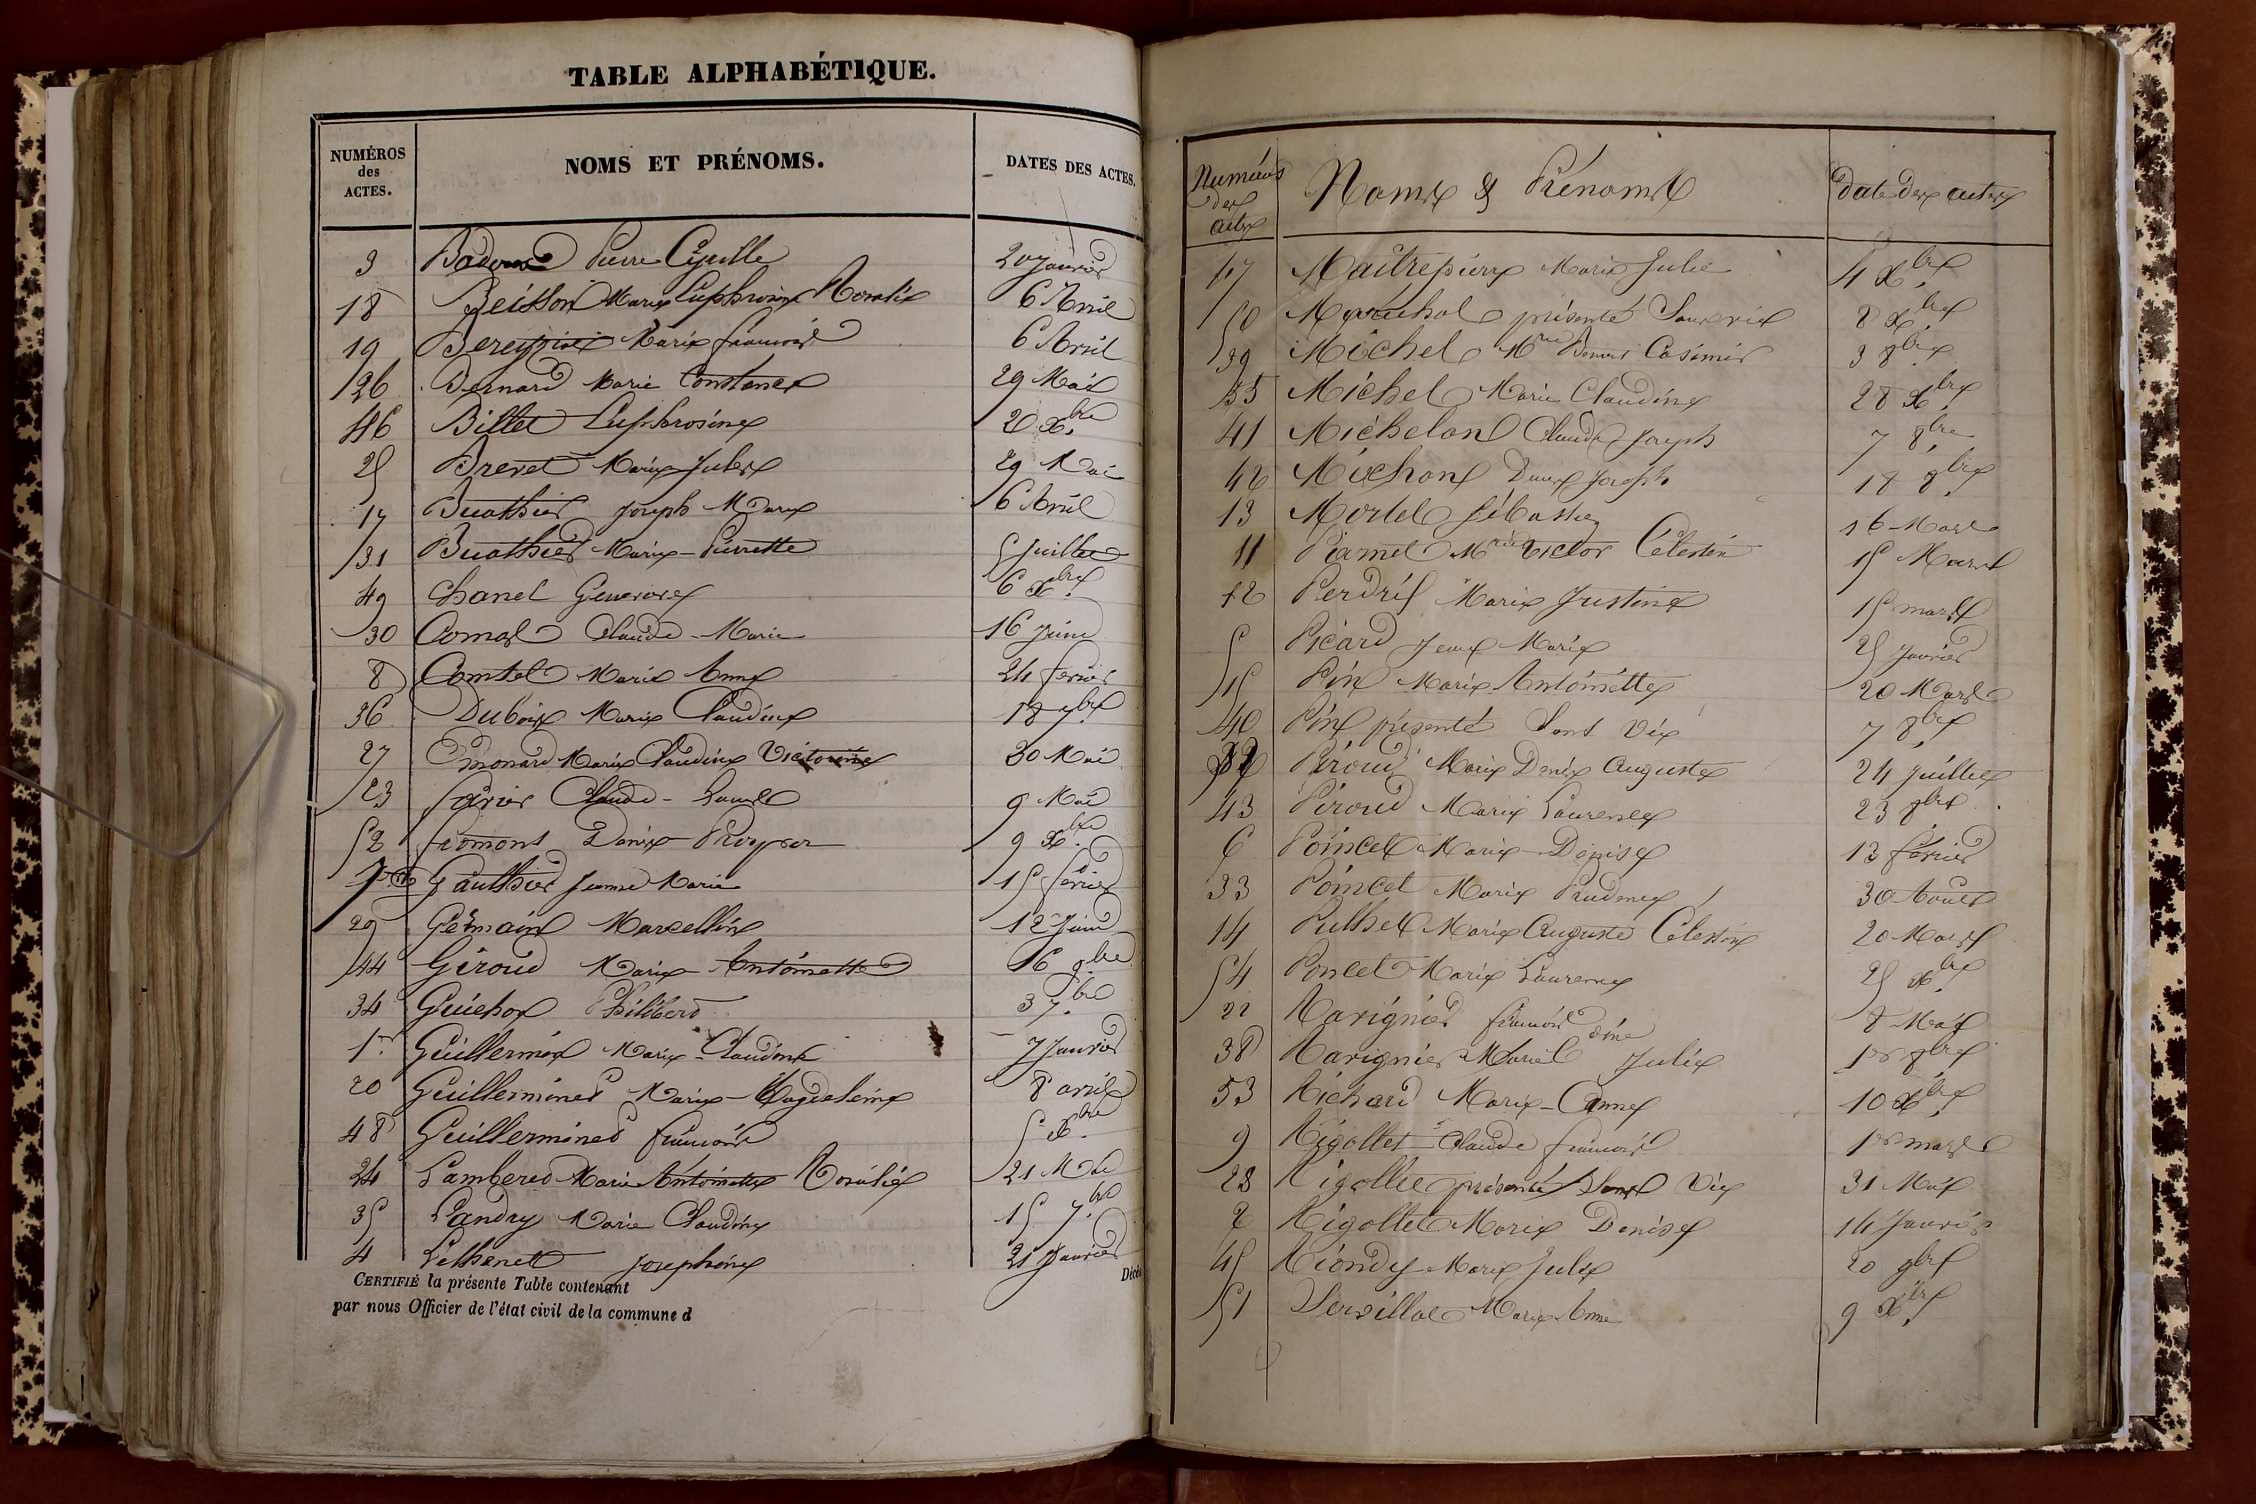 TABLE ALPHABÉTIQUE.
NUMÉROS
des
ACTES.
NOMS ET PRÉNOMS.
DATES DES ACTES.
3 Pierre Cyrille 20 Janvier
18 Beisson Marie Euphrosine Rosalie 6 Avril
19 Marie François 6 Avril
26 Bernard Marie Constance 29 Mai
46 Billet Euphrosine 20 Xbre
25 Brevet Marie Julie 29 Mai
17 Buathier Joseph Marie 6 Avril
31 Buathier Marie-Pierrette 5 Juillet
49 Chanel Genevieve 6 Xbre
30 Comas Claude-Marie 16 Juin
8 Comtet Marie Anne 24 fevrier
36 Dubois Marie Claudine 18 7bre
27 Emonard Marie Claudine Victorine 30 Mai
23 Claude-Laurent 9 Mai
52 fromont Denis Prosper 9 Xbre
7 Gauthier Jeanne Marie 15 fevrier
29 Germain Marcellin 12 Juin
44 Giroud Marie Antoinette 16 9bre
34 Guichon Philiberd 3 7bre
1er Guillermin Marie-Claudine 7 Janvier
20 Guillerminet Marie-Magdeleine 8 avril
48 Guillerminet François 5 Xbre
24 Lamberd Marie Antoinette Rosalie 21 Mai
35 Landry Marie Claudine 15 7bre
4 Pethenet Josephine 21 Janvier
CERTIFIÉ la présente Table contenant
Décè
par nous Officier de l'état civil de la commune d
Numéros
des
actes
Noms & Prénoms
Date des actes
47 Maitrepierre Marie Julie 4 Xbre
50 Maréchal présenté Sans vie 8 Xbre
39 Michel Mrie Casimir 3 8bre
55 Michel Marie Claudine 28 Xbre
41 Michelon Claude Joseph 7 8bre
42 Michon Joseph 18 8bre
13 Mortel Sébastien 16 Mars
11 Mrie Victor Célestin 15 Mars
12 Perdrix Marie Justine 15 mars
5 Picard Jean Marie 25 Janvier
15 Pin Marie Antoinette 20 Mars
40 Pin présenté Sans vie 7 8bre
32 Piroud Marie Denis Auguste 24 Juillet
43 Piroud Marie Laurence 23 8bre
6 Poincet Marie-Denise 13 février
33 Poincet Marie Prudence 30 Août
14 Puthet Marie Auguste Célestine 20 Mars
54 Poncet Marie Laurence 25 Xbre
22 Ravignier françois 8 Mai
38 Ravignier Marie Julie 1er 8bre
53 Richard Marie-Anne 10 Xbre
9 Rigollet Claude françois 1er mars
28 Rigollet présenté Sans vie 31 Mai
2 Rigollet Marie Denise 14 Janvier
45 Riondy Marie Julie 20 9bre
51 Marie Anne 9 Xbre